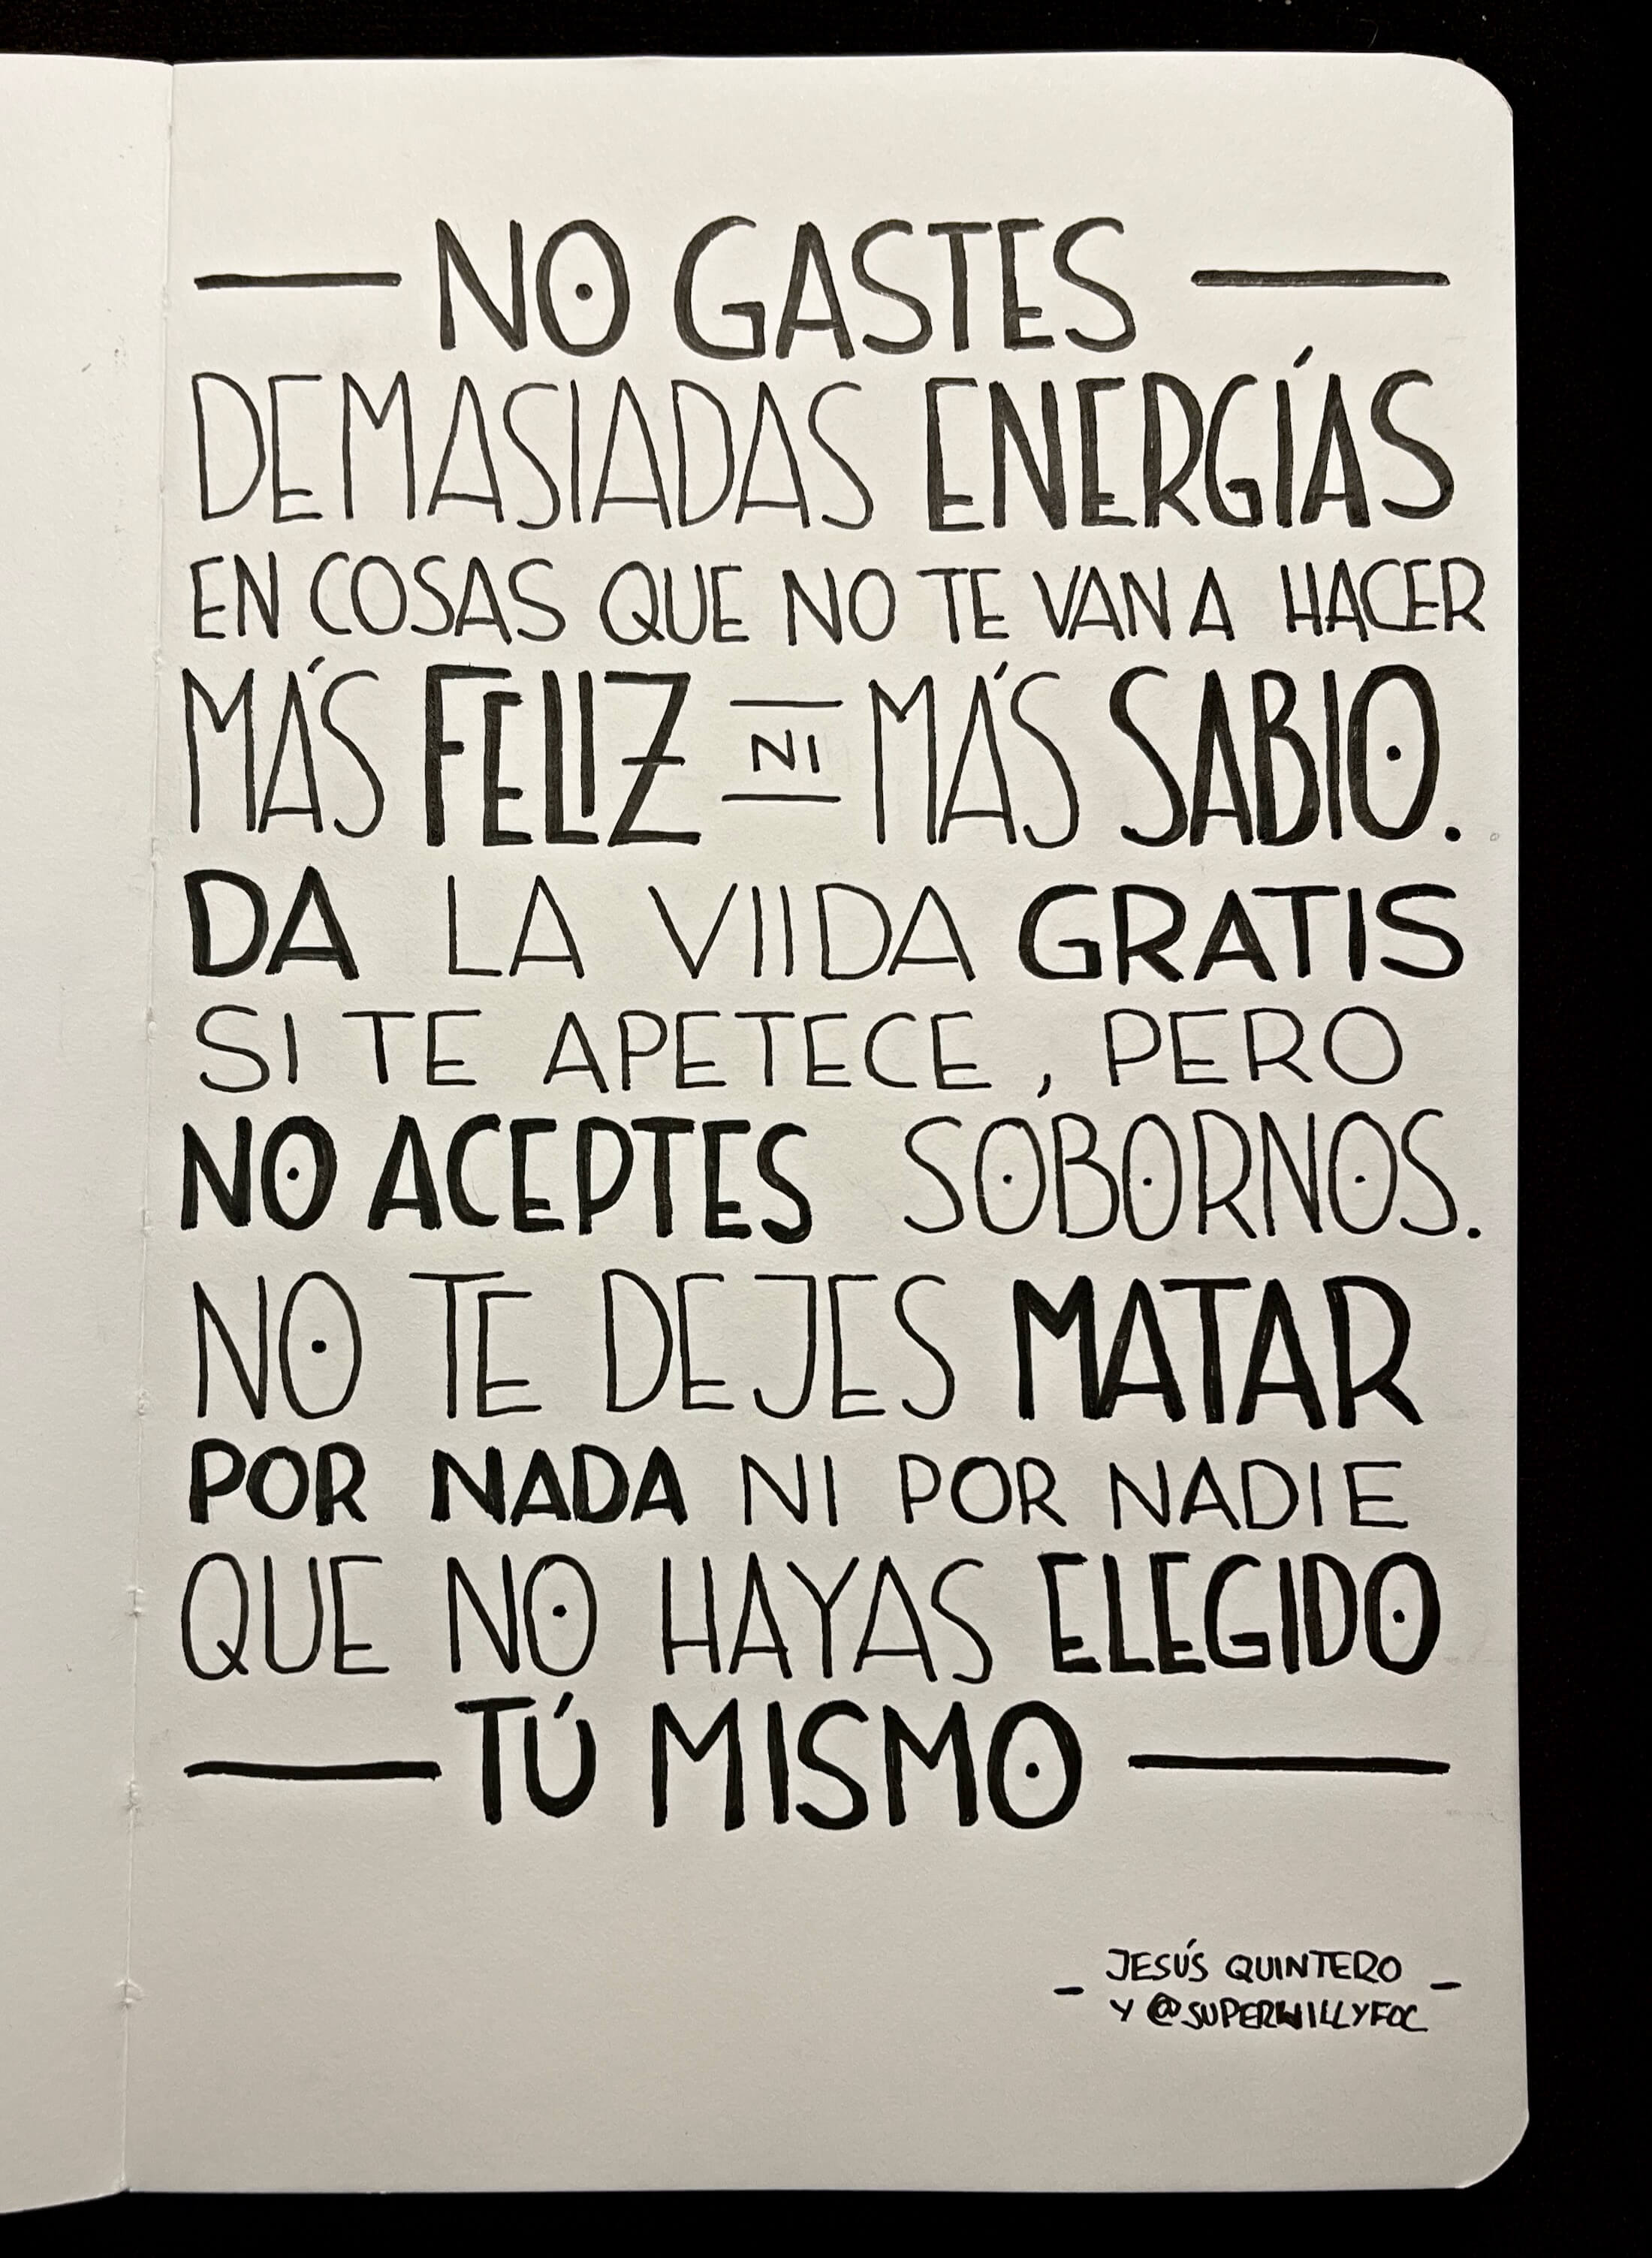 NO GASTES
DEMASIADAS ENERGÍAS
EN COSAS QUE NO TE VAN A HACER
MÁS FELIZ NI MÁS SABIO.
DA LA VIIDA GRATIS
SI TE APETECE, PERO
NO ACEPTES SOBORNOS.
NO TE DEJES MATAR
POR NADA NI POR NADIE
QUE NO HAYAS ELEGIDO
TÚ MISMO
JESÚS QUINTERO
Y @SUPERWILLYFOC